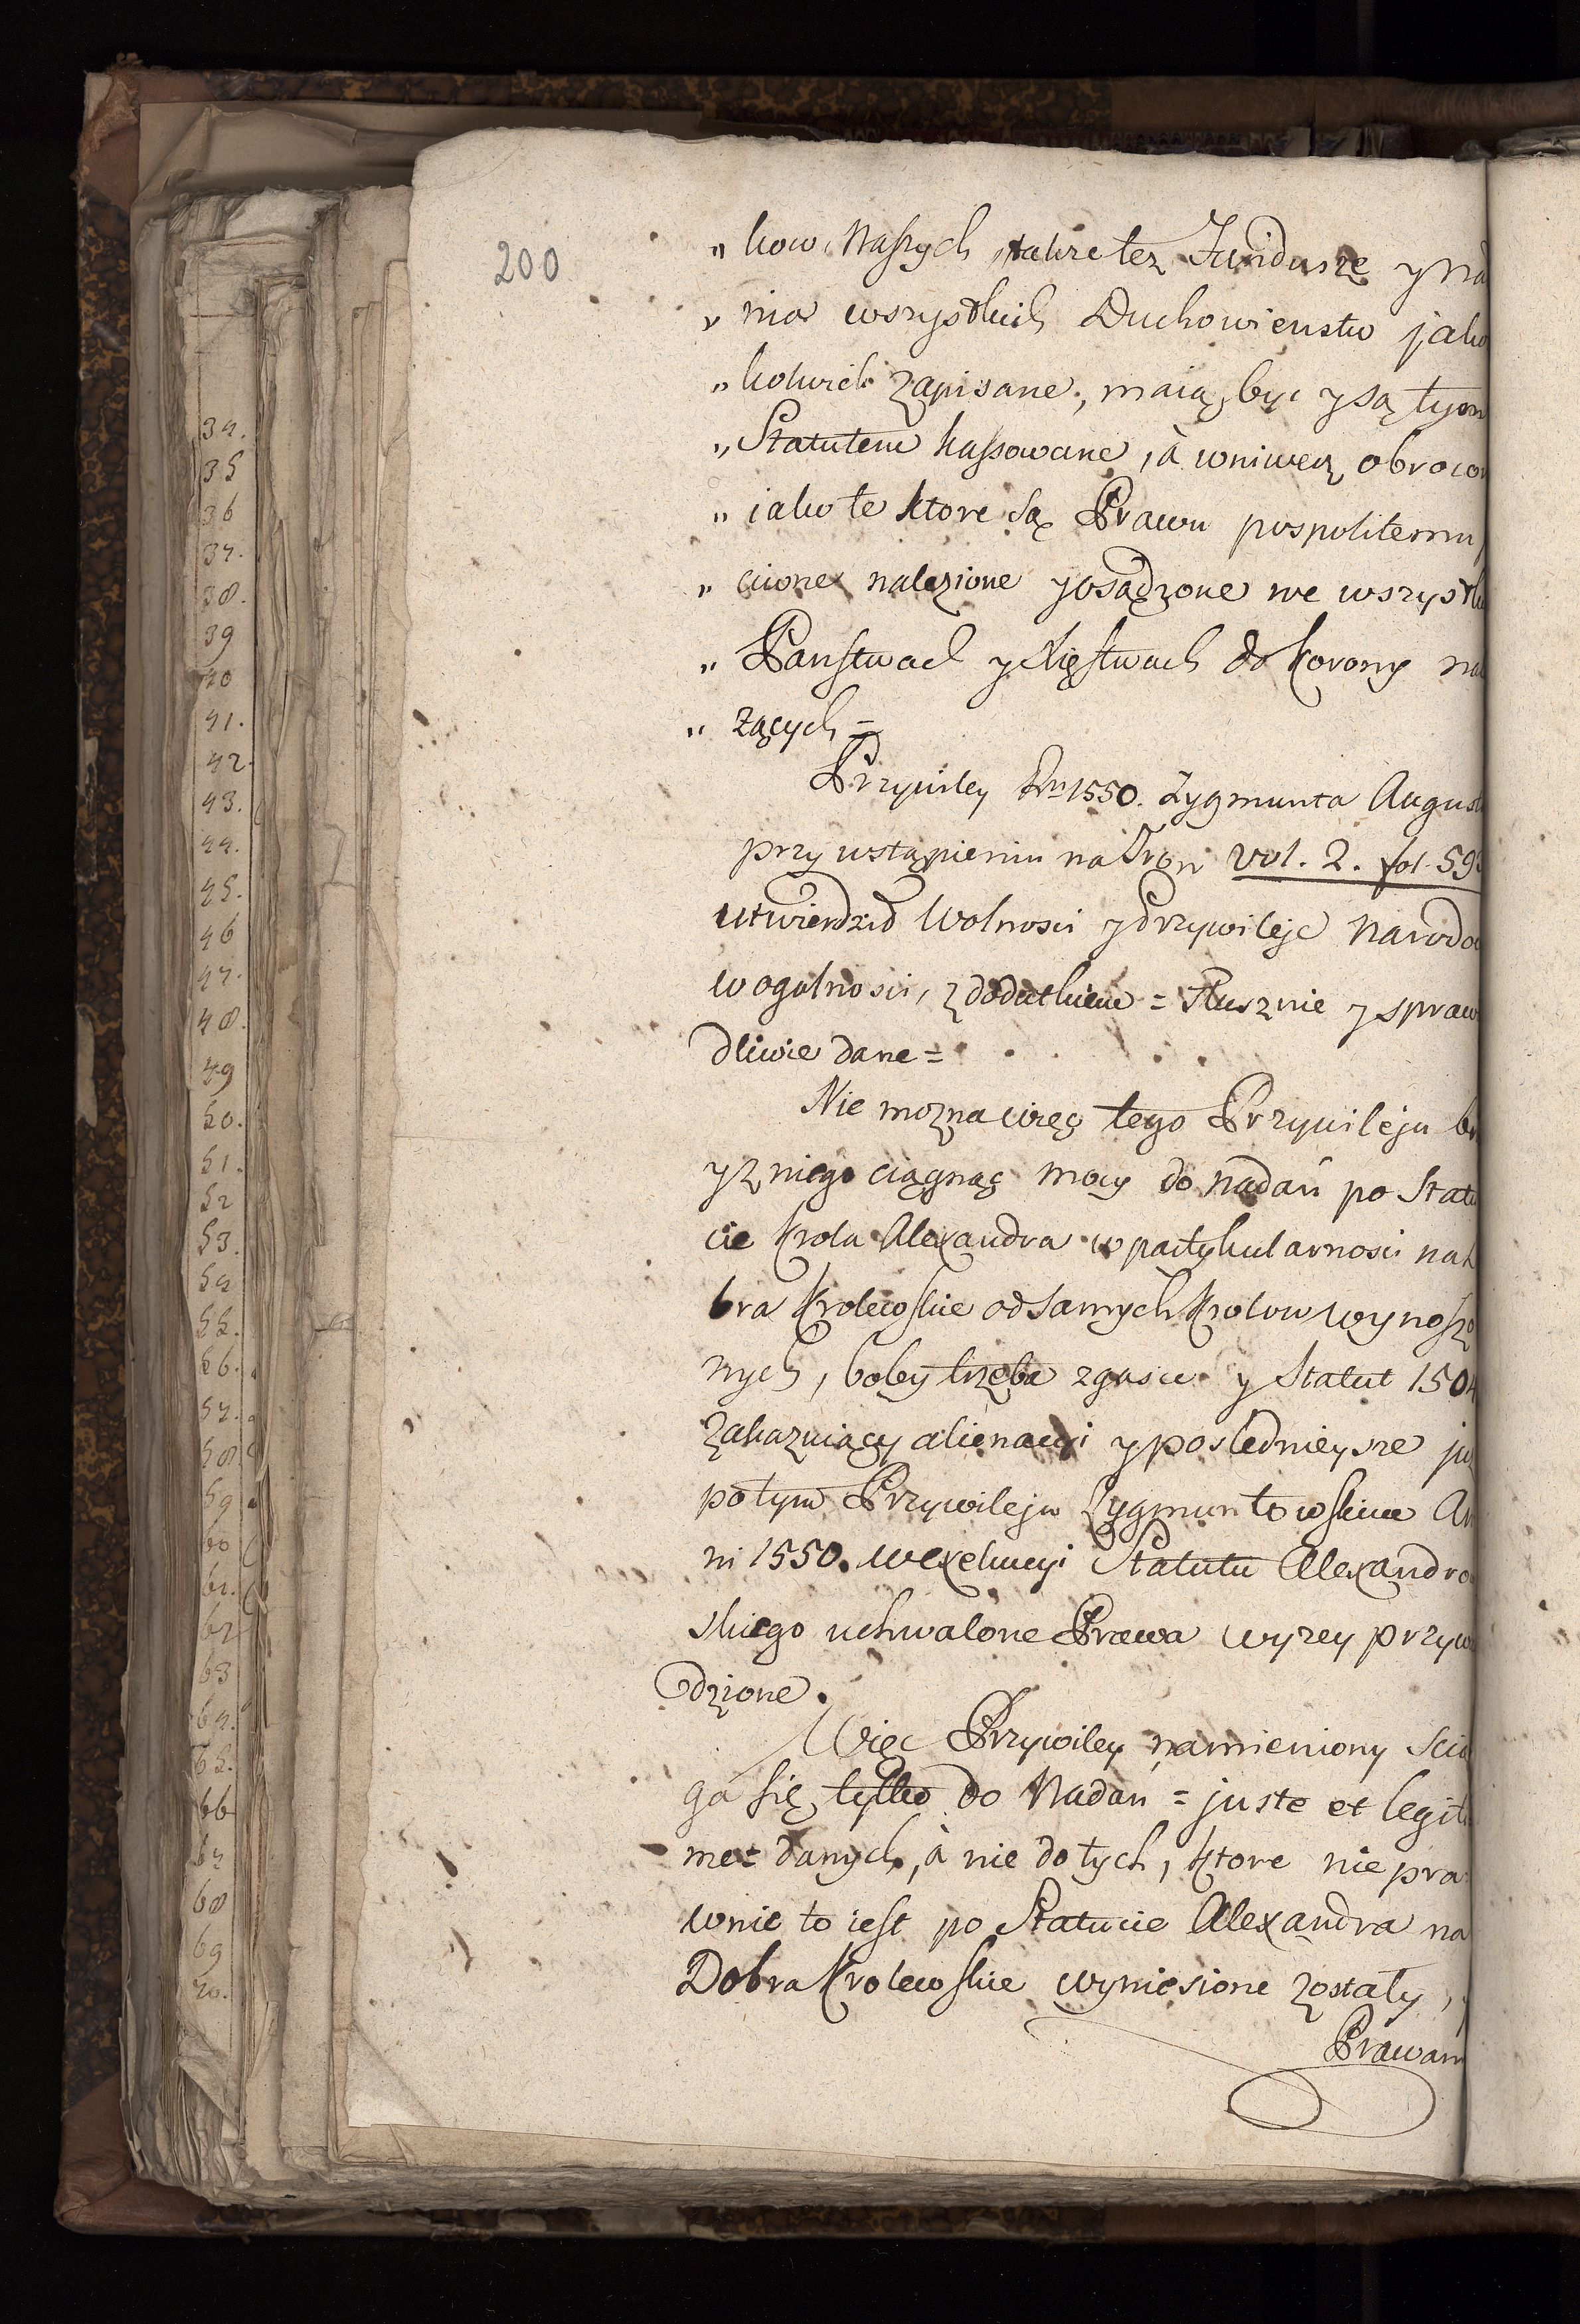 200
„ kow Naszych, takze tez Fundusze y na
„ nia wszystkich Duchowienstw jako
„ kolwiek zapisane, maią byc y są tym
„ Statutem kassowane, à wniwecz obrocon
„ iako te ktore są Prawu pospolitemu
„ ciwne nalezione y osądzone we wszystk
„ Panstwach y Xięstwach do Korony nal
„ żących =
Przywiley An 1550. Zygmunta August
przy wstąpieniu na Tron vol. 2. fol. 59
utwierdził Wolnosci y Przywileje Narodo
w ogulnosci, z dodatkiem = słusznie y spraw
dliwie dane =
Nie mozna więc tego Przywileju br
y z niego ciągnąc mocy do nadań po Statu
cie Krola Alexandra w partykularnosci na
bra Krolewskie od samych Krolow wynoszo
nych, boby trzeba zgasic y Statut 1504
zakazuiący alienacyi y poslednieysze juz
po tym Przywileju Zygmuntowskim An
ni 1550. w exekucyi Statutu Alexandrow
skiego uchwalone Prawa wyzey przyw
dzione.
Więc Przywiley namieniony scią
ga się tylko do Nadań = juste et legiti
me = danych, à nie do tych, ktore nie pra
wnie to iest po Statucie Alexandra na
Dobra Krolewskie wyniesione zostały,
Prawam
34.
35
36
37.
38.
39
40
41.
42.
43.
44.
45.
46
47.
48.
49
50.
51.
52
53.
54
55.
56.
57.
58
59
60
61.
62
63
64.
65.
66
67
68
69
70.